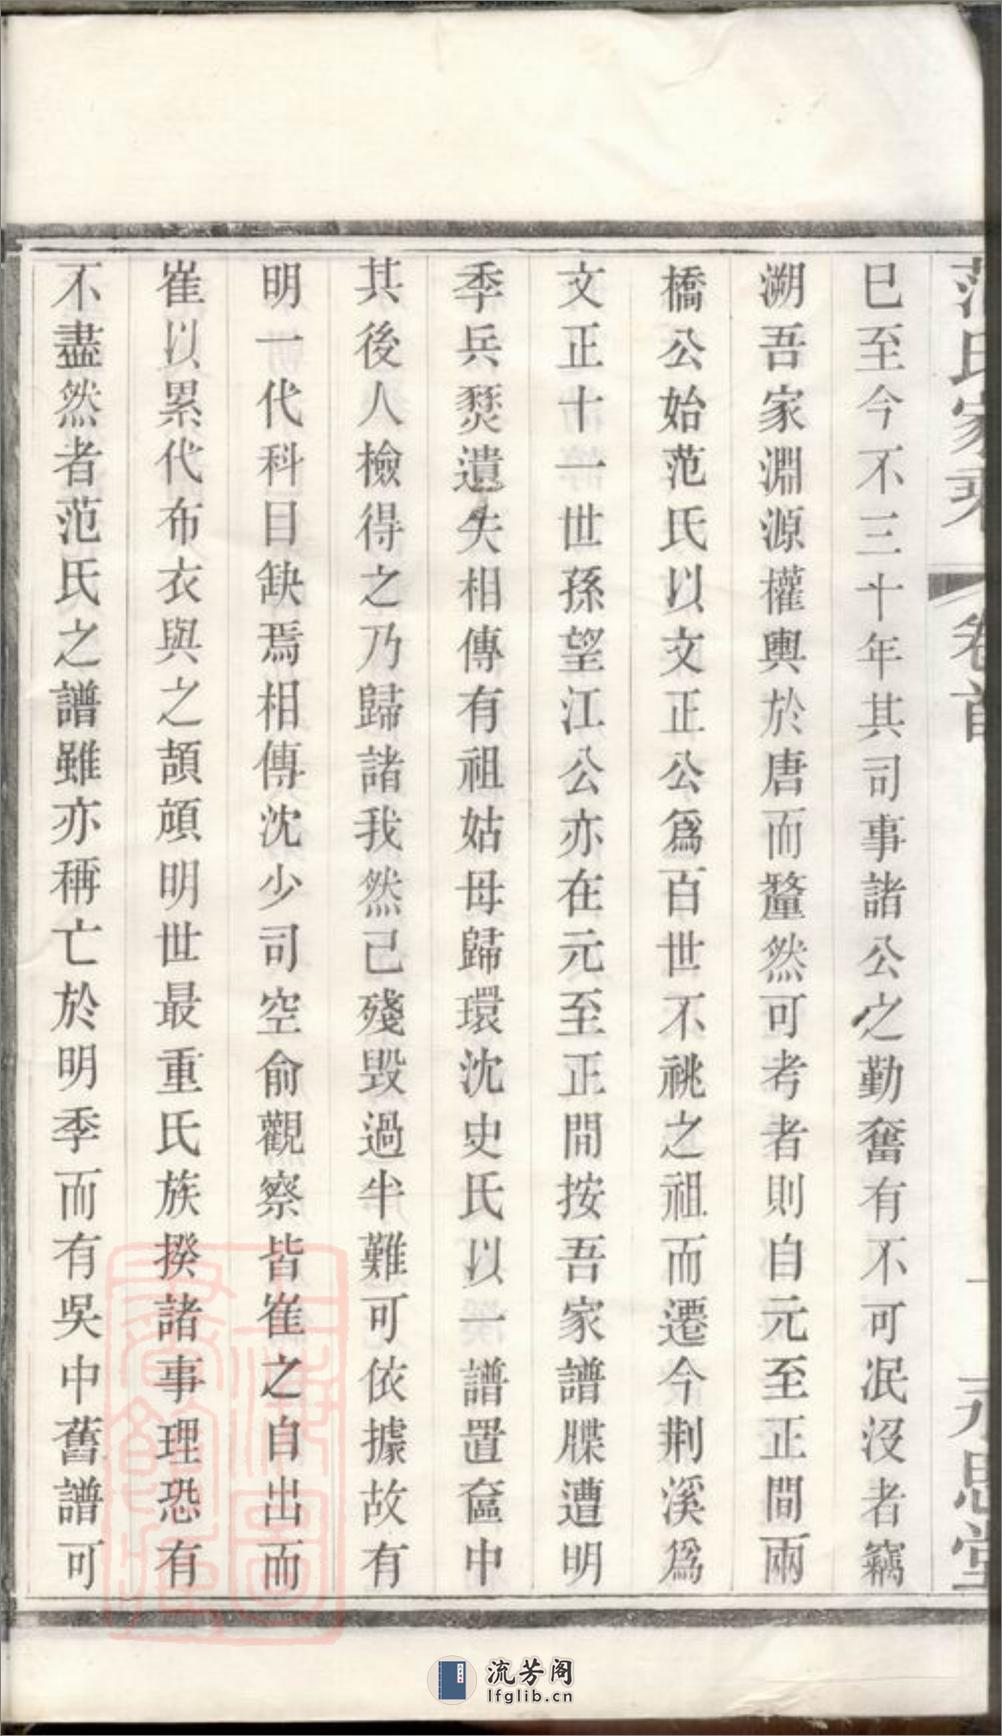 范氏家乘 卷首 永思堂
巳至今不三十年其司事諸公之勤奮有不可泯沒者竊
溯吾家淵源權輿於唐而釐然可考者則自元至正間兩
橋公始范氏以文正公爲百世不祧之祖而遷今荆溪爲
文正十一世孫望江公亦在元至正間按吾家譜牒遭明
季兵燹遺失相傳有祖姑母歸環沈史氏以一譜置奩中
其後人檢得之乃歸諸我然己殘毀過半難可依據故有
明一代科目缺焉相傳沈少司空俞觀察皆崔之自出而
崔以累代布衣與之頡頏明世最重氏族揆諸事理恐有
不盡然者范氏之譜雖亦稱亡於明季而有吳中舊譜可
上海圖書館藏
流芳阁
lfglib.cn